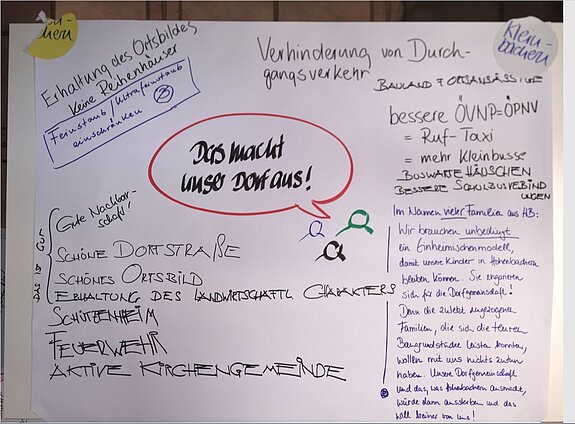 Klein-
bachern
Erhaltung des Ortsbildes
keine Reihenhäuser
Feinstaub/Ultrafeinstaub
einschränken
Verhinderung von Durch-
gangsverkehr
BAULAND F ORTSANSÄSSIGE
bessere ÖVNP=ÖPNV
= Ruf-Taxi
= mehr Kleinbusse
BUSWARTEHÄUSCHEN
BESSERE SCHULBUSVERBIND
UNGEN
Das macht
unser Dorf aus!
DAS IST GUT
Gute Nachbar-
schaft!
SCHÖNE DORFSTRAßE
SCHÖNES ORTSBILD
ERHALTUNG DES LANDWIRTSCHAFTL CHARAKTERS
SCHÜTZENHEIM
FEUERWEHR
AKTIVE KIRCHENGEMEINDE
Im Namen vieler Familien aus HB:
Wir brauchen unbedingt
ein Einheimischenmodell,
damit unsere Kinder in Hohenbachern
bleiben können. Sie engagieren
sich für die Dorfgemeinschaft!
Denn die zuletzt zugezogenen
Familien, die sich die teuren
Baugrundstücke leisten konnten,
wollen mit uns nichts zutun
haben. Unsere Dorfgemeinschaft
und das, was Hohenbachern ausmacht,
würde dann aussterben und das
will keiner von uns!